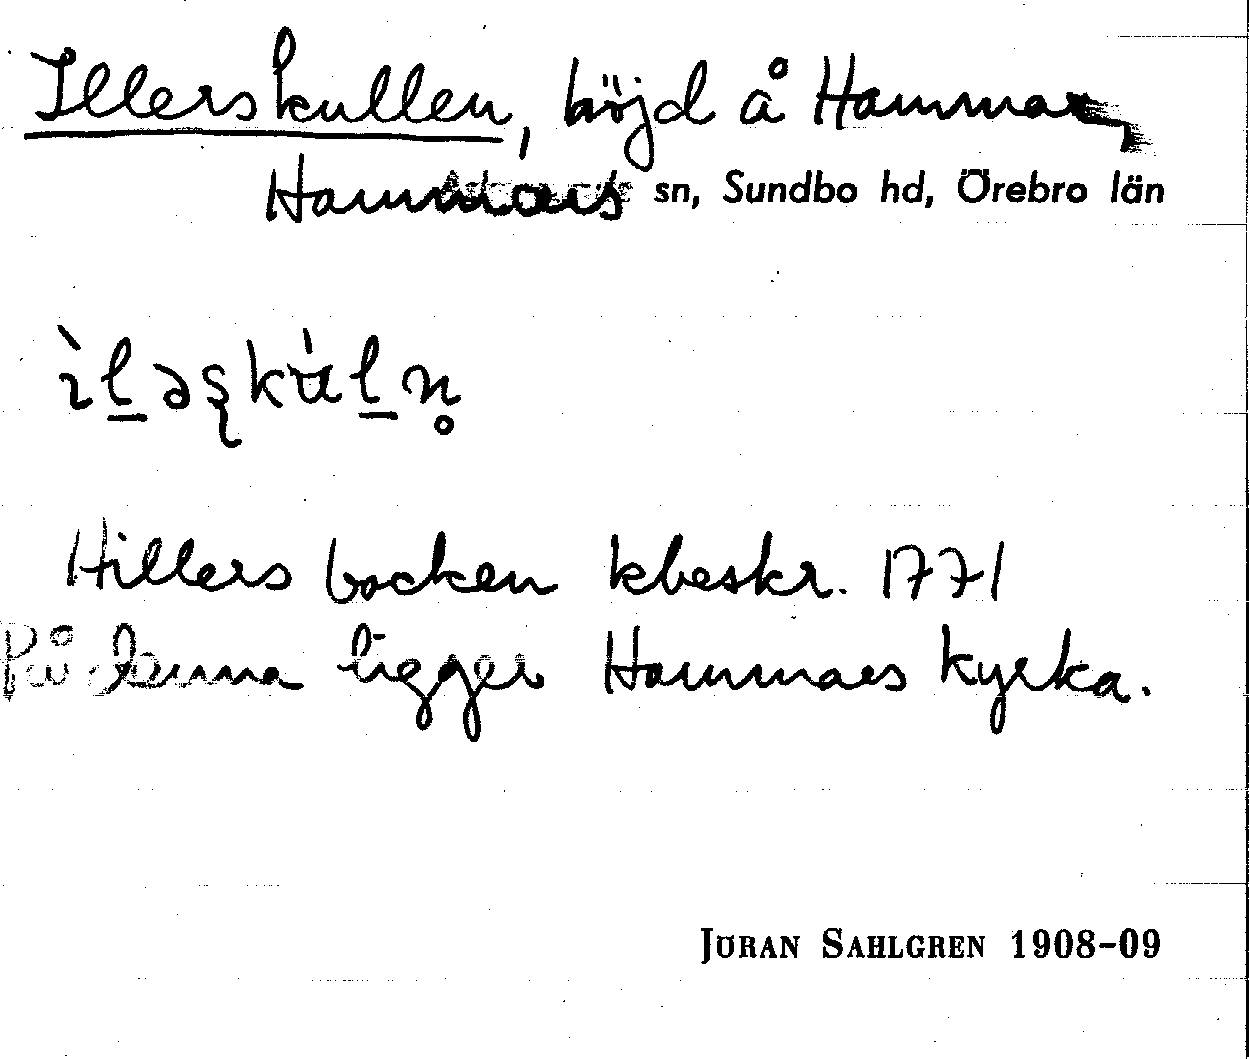 Illerskullen, höjd å Hammar,
Hammars sn, Sundbo hd, Örebro län
ìl̲əʂkùl̲n̥
Hillers backen kbeskr. 1771
På denna ligger Hammars kyrka.
JÖRAN SAHLGREN 1908-09